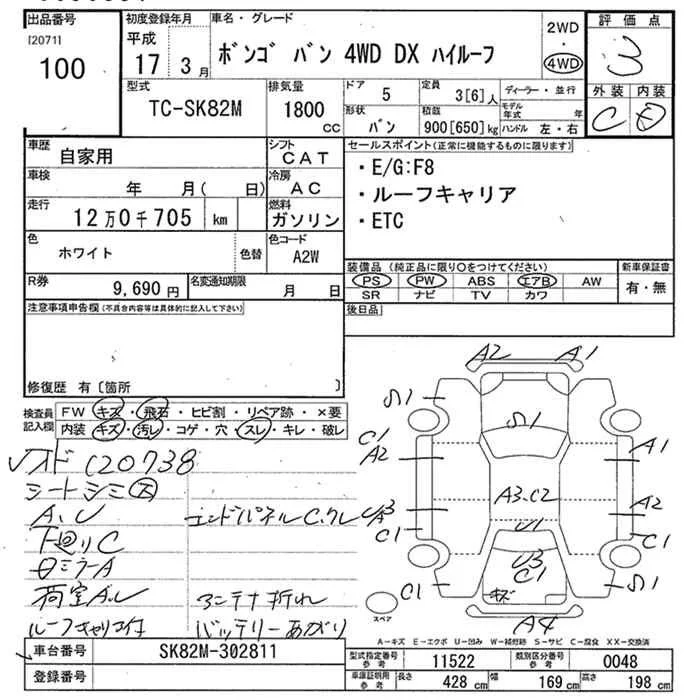 出品番号
[2071]
100
初度登録年月
平成
17 3月
車名・グレード
ボンゴ バン 4WD DX ハイルーフ
2WD
・
4WD
評価点
3
外装 内装
C D
型式
TC-SK82M
排気量
1800
CC
ドア
5
形状
バン
定員
3[6]人
積載
900[650]kg
ディーラー・並行
モデル年式 年
ハンドル 左・右
車歴
自家用
シフト
CAT
車検
年 月( 日)
冷房
AC
走行
12万0千705 km
燃料
ガソリン
色
ホワイト
色替
色コード
A2W
R券
9,690円
名変通知期限
月 日
セールスポイント(正常に機能するものに限ります)
・E/G:F8
・ルーフキャリア
・ETC
装備品 (純正品に限り○をつけてください)
PS PW ABS エアB AW
SR ナビ TV カワ
新車保証書
有・無
後日品
注意事項申告欄(不具合内容等は具体的に記入して下さい)
修復歴 有〔箇所 〕
検査員記入欄
FW キズ・飛石・ヒビ割・リペア跡・×要
内装 キズ・汚レ・コゲ・穴・スレ・キレ・破レ
メオド 120738
シートシミ大
A、U エンドパネルC、クレ
下廻りC
ミラーA
荷室A、U アンテナ折れ
ルーフキャリア付 バッテリーあがり
A2 A1
S1 S1
C1
A2 A1
A3、C2
UA3 A2
C1 C1
U1
U3
C1
C1 キズ S1
A4
スペア
A－キズ E－エクボ U－凹み W－補修跡 S－サビ C－腐食 XX－交換済
車台番号
SK82M-302811
登録番号
型式指定番号 参考
11522
類別区分番号 参考
0048
車庫証明用 参考
長さ 428 cm
幅 169 cm
高さ 198 cm